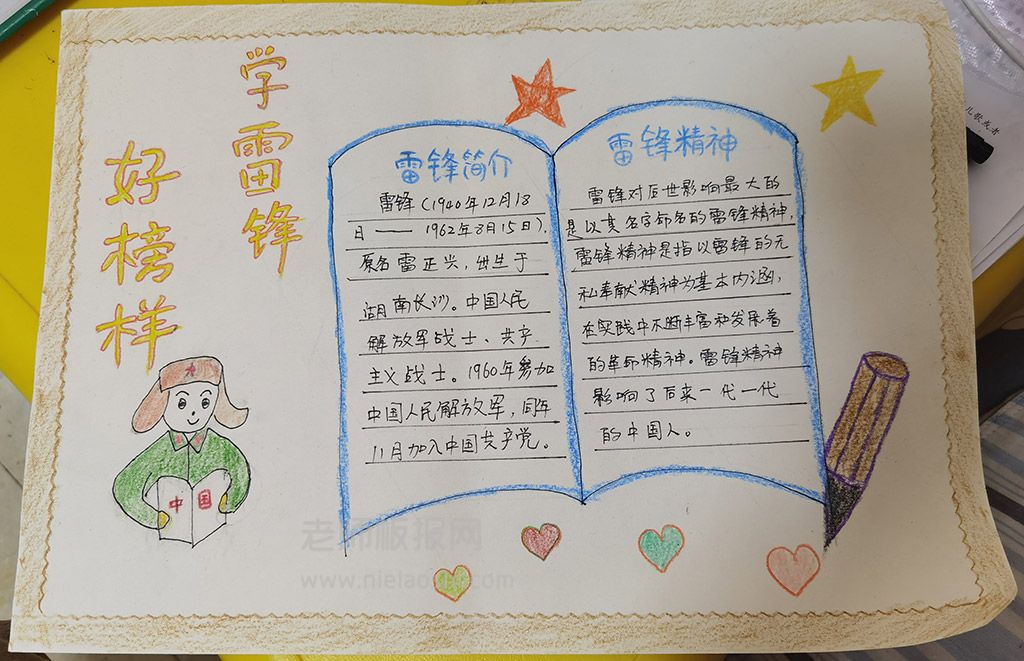 学雷锋
好榜样
雷锋简介
雷锋(1940年12月18
日—— 1962年8月15日),
原名雷正兴,出生于
湖南长沙。中国人民
解放军战士、共产
主义战士。1960年参加
中国人民解放军,同年
11月加入中国共产党。
雷锋精神
雷锋对后世影响最大的
是以其名字命名的雷锋精神,
雷锋精神是指以雷锋的无
私奉献精神为基本内涵,
在实践中不断丰富和发展着
的革命精神。雷锋精神
影响了后来一代一代
的中国人。
中国
老师板报网
儿歌或者